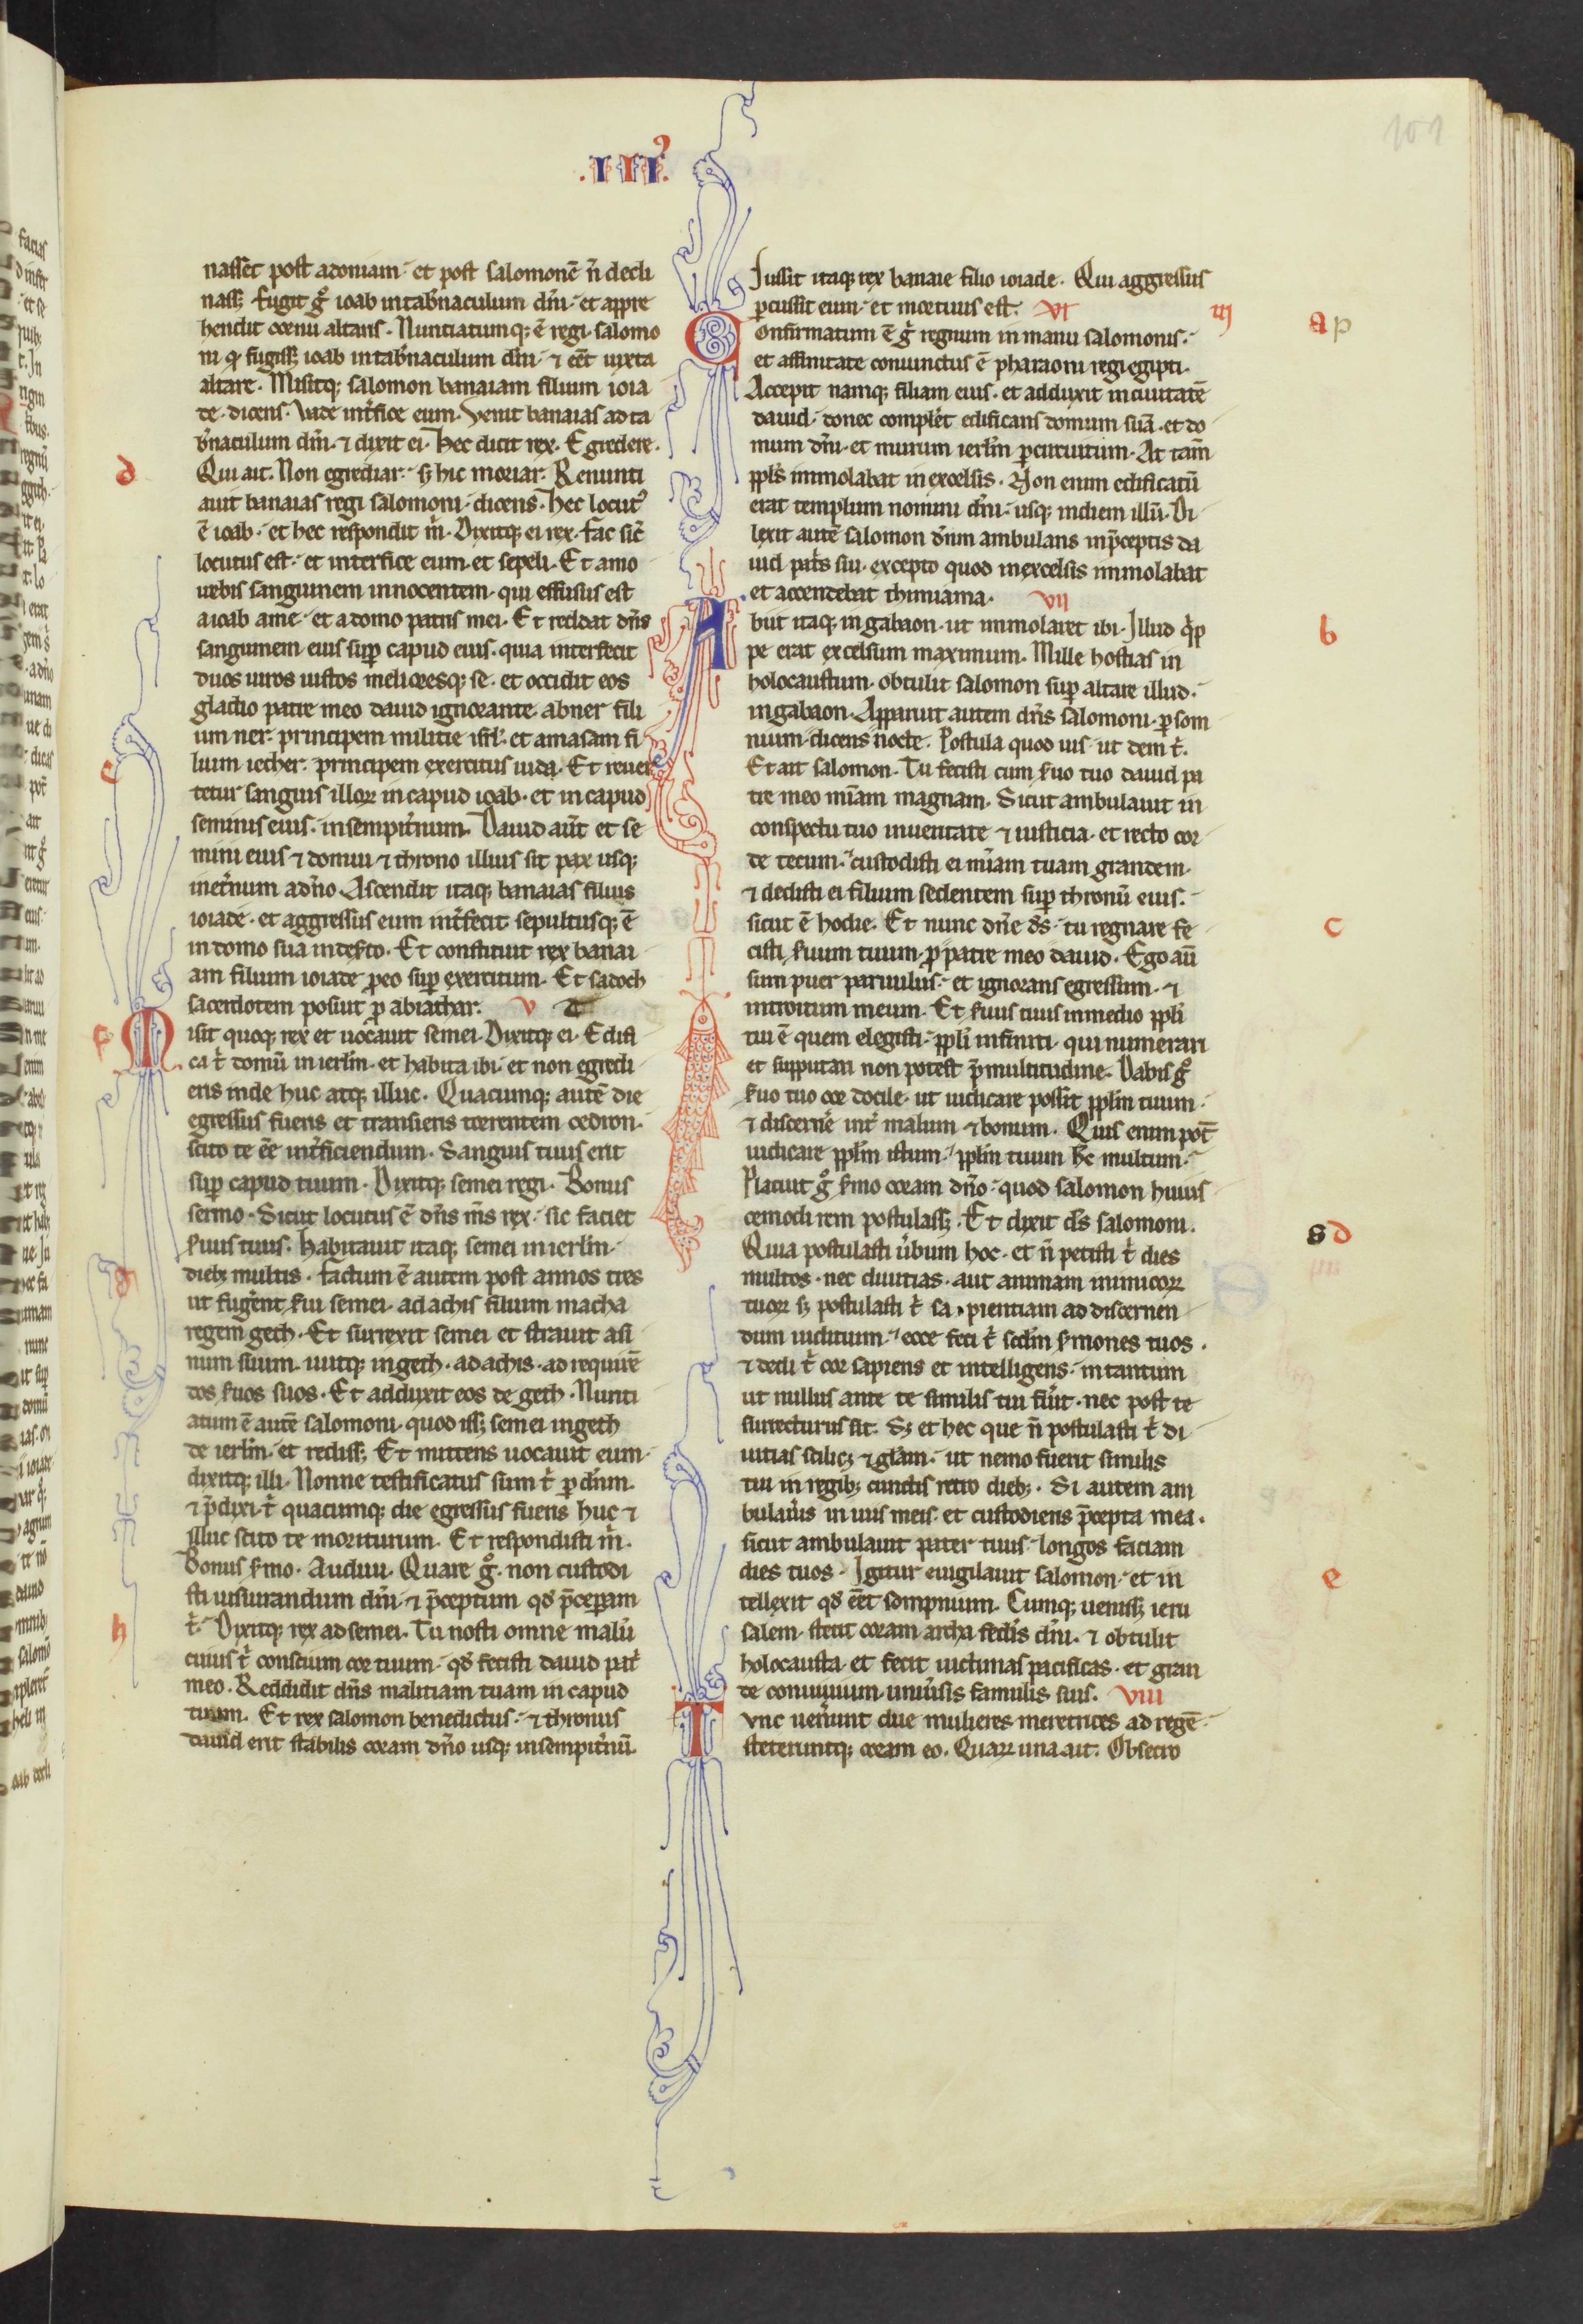 .III⁹.
101
nasset post adoniam. et post salomonē n̄ decli
nass; fugit gͦ ioab in tab̓naculum dn̄i. et appre
hendit cornu altaris. Nuntiatumq; ē regi salomo
ni qͥ fugiss; ioab in tab̓naculum dn̄i. ⁊ eēt iuxta
altare. Misitq; salomon banaiam filium ioia
de. dicens. Vade int̓fice eum. Venit banaias ad ta
b̓naculum dn̄i. ⁊ dixit ei. Hec dicit rex. Egredere.
Qui ait. Non egrediar. s; hic moriar. Renunti
auit banaias regi salomoni. dicens. Hec locut⁹
ē ioab. et hec respondit m̓. Dixitq; ei rex. fac sic̄
locutus est. et interfice eum. et sepeli. Et amo
uebis sanguinem innocentem. qui effusus est
a ioab a me. et a domo patris mei. Et reddat dn̄s
sanguinem eius sup̱ capud eius. quia interfecit
duos uiros iustos melioresq; se. et occidit eos
gladio patre meo dauid ignorante. abner fili
um ner. principem militie isrl̄. et amasam fi
lium iecher. principem exercitus iuda. Et reuer
tetur sanguis illoꝝ in capud ioab. et in capud
seminis eius. in sempit̓num. Dauid aūt et se
mini eius ⁊ domui ⁊ throno illius sit pax usq;
in et̓num a dn̄o. Ascendit itaq; banaias filius
ioiade. et aggressus eum int̓fecit sepultusq; ē
in domo sua in des̓to. Et constituit rex banai
am filium ioiade p̱ eo sup̱ exercitum. Et sadoch
sacerdotem posuit p̱ abiathar. V
Misit quoq; rex et uocauit semei. Dixitq; ei. Edifi
ca t̓ domū in ierl̄m. et habita ibi. et non egredi
eris inde huc atq; illuc. Quacumq; autē die
egressus fueris et transieris torrentem cedron.
scito te eē int̓ficiendum. Sanguis tuus erit
sup̱ capud tuum. Dixitq; semei regi. Bonus
sermo. Sicut locutus ē dn̄s m̄s rex. sic faciet
s̓uus tuus. Habitauit itaq; semei in ierl̄m.
dieb; multis. factum ē autem post annos tres
ut fuger̄nt s̓ui semei. ad achis filium macha
regem geth. Et surrexit semei et strauit asi
num suum. iuitq; in geth. ad achis. ad requirē
dos s̓uos suos. Et adduxit eos de geth. Nunti
atum ē autē salomoni. quod iss; semei in geth
de ierl̄m. et rediss; Et mittens uocauit eum.
dixitq; illi. Nonne testificatus sum t̓ p̱ dn̄m.
⁊ p̄dixi t̓ quacumq; die egressus fueris huc ⁊
illuc scito te moriturum. Et respondisti m̓.
Bonus s̓mo. Audiui. Quare gͦ. non custodi
sti iusiurandum dn̄i. ⁊ p̄ceptum qd̓ p̄cep̱am
t̓. Dixitq; rex ad semei. Tu nosti omne malū
cuius t̓ conscium cor tuum. qd̓ fecisti dauid pat̓
meo. Reddidit dn̄s malitiam tuam in capud
tuum. Et rex salomon benedictus. ⁊ thronus
dauid erit stabilis coram dn̄o usq; in sempit̓nū.
Iussit itaq; rex banaie filio ioiade. Qui aggressus
p̱cussit eum. et mortuus est. VI
Confirmatum ē gͥ regnum in manu salomonis.
et affinitate coniunctus ē pharaoni regi egipti.
Accepit namq; filiam eius. et adduxit in ciuitatē
dauid. donec complet̓ edificans domum suā. et do
mum dn̄i. et murum ierl̄m p̱ circuitum. At tam̄
pp̱ls immolabat in excelsis. Non enim edificatū
erat templum nomini dn̄i. usq; in diem illū. Di
lexit autē salomon dn̄m ambulans in p̄ceptis da
uid pat̓s sui. excepto quod in excelsis immolabat
et accendebat thimiama. VII
Abiit itaq; in gabaon. ut immolaret ibi. Illud qͥp
pe erat excelsum maximum. Mille hostias in
holocaustum. obtulit salomon sup̱ altare illud.
in gabaon. Apparuit autem dn̄s salomoni. p̱ som
nium. dicens nocte. Postula quod uis ut dem t̓.
Et ait salomon. Tu fecisti cum s̓uo tuo dauid pa
tre meo mīam magnam. Sicut ambulauit in
conspectu tuo in ueritate ⁊ iusticia. et recto cor
de tecum. custodisti ei mīam tuam grandem.
⁊ dedisti ei filium sedentem sup̱ thronū eius.
sicut ē hodie. Et nunc dn̄e ds̄. tu regnare fe
cisti s̓uum tuum. p̱ patre meo dauid. Ego aū
sum puer paruulus. et ignorans egressum. ⁊
introitum meum. Et s̓uus tuus in medio pp̱li
tui ē quem elegisti. pp̱li infiniti. qui numerari
et supputari non potest p̄ multitudine. Dabis gͦ
s̓uo tuo cor docile. ut iudicare possit pp̱lm tuum.
⁊ discern̓e int̓ malum ⁊ bonum. Quis enim pot̄
iudicare pp̱lm istum. pp̱lm tuum hc̄ multum.
Placuit gͦ s̓mo coram dn̄o. quod salomon huius
cemodi rem postulass;. Et dixit ds̄ salomoni.
Quia postulasti u̓bum hoc. et n̄ petisti t̓ dies
multos. nec diuitias. aut animam inimicoꝝ
tuoꝝ s; postulasti t̓ sapientiam ad discernen
dum iuditium. ecce feci t̓ scd̄m s̓mones tuos.
⁊ dedi t̓ cor sapiens et intelligens. in tantum
ut nullus ante te similis tui fu̓it. nec post te
surrecturus sit. S; et hec que n̄ postulasti t̓ di
uitias scilic; ⁊ glām. ut nemo fuerit similis
tui in regib; cunctis retro dieb;. Si autem am
bulau̓is in uiis meis. et custodieris p̄cepta mea.
sicut ambulauit pater tuus. longos faciam
dies tuos. Igitur euigilauit salomon. et in
tellexit qd̓ eēt sompnium. Cumq; ueniss; ieru
salem. stetit coram archa fed̓is dn̄i. ⁊ obtulit
holocausta. et fecit uictimas pacificas. et gran
de conuiuium uniu̓sis famulis suis. VIII
Tvnc uen̓unt due mulieres meretrices ad regē.
steteruntq; coram eo. Quaꝝ una ait. Obsecro
d
e
f
g
h
III
a p
b
c
s d
e